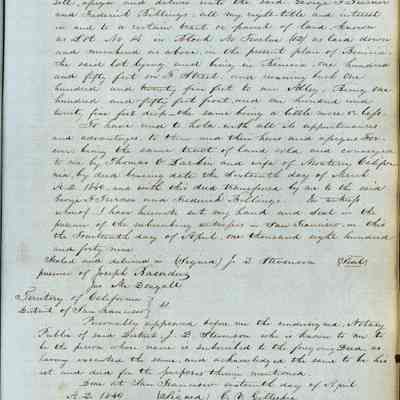 sell, assign and deliver unto the said George N Turner
and Frederick Billings, all my right title and interest
in and to a certain tract or parcel of land, known
as Lot No 14 in Block No Twelve (12) as laid down
and numbered as above, in the present plan of Benicia,
the said lot lying and being in Benicia, one hundred
and fifty feet on G Street, and running back One
hundred and twenty five feet to an Alley, Being one
hundred and fifty feet front, and one hundred and
twenty five feet deep the same being a little more or less.
To have and to hold with all its appurtenances
and advantages, to them and their heirs and assigns For-
ever being the same tract of land sold and conveyed
to me by Thomas O Larkin and wife of Monterey Califor-
nia, by deed bearing date the Sixteenth day of March
A.D. 1849, and with this deed transferred by me to the said
George N Turner and Frederick Billings. In witness
whereof I have hereunto set my hand and seal in the
presence of the subscribing witnesses in San Francisco, on this
the fourteenth day of April, one thousand eight hundred
and forty nine
Sealed and delivered in (Signed) J. D. Stevenson (Seal)
presence of Joseph
Jas McDougall
Territory of California
District of San Francisco } ss
Personally appeared before me the undersigned, Notary
Public of said District J. D. Stevenson who is known to me to
be the person whose name is subscribed to the foregoing Deed, as
having executed the same, and acknowledged the same to be his
act and deed for the purposes therein mentioned.
Done at San Francisco sixteenth day of April
A.D. 1849 (Signed) C. V. Gillespie